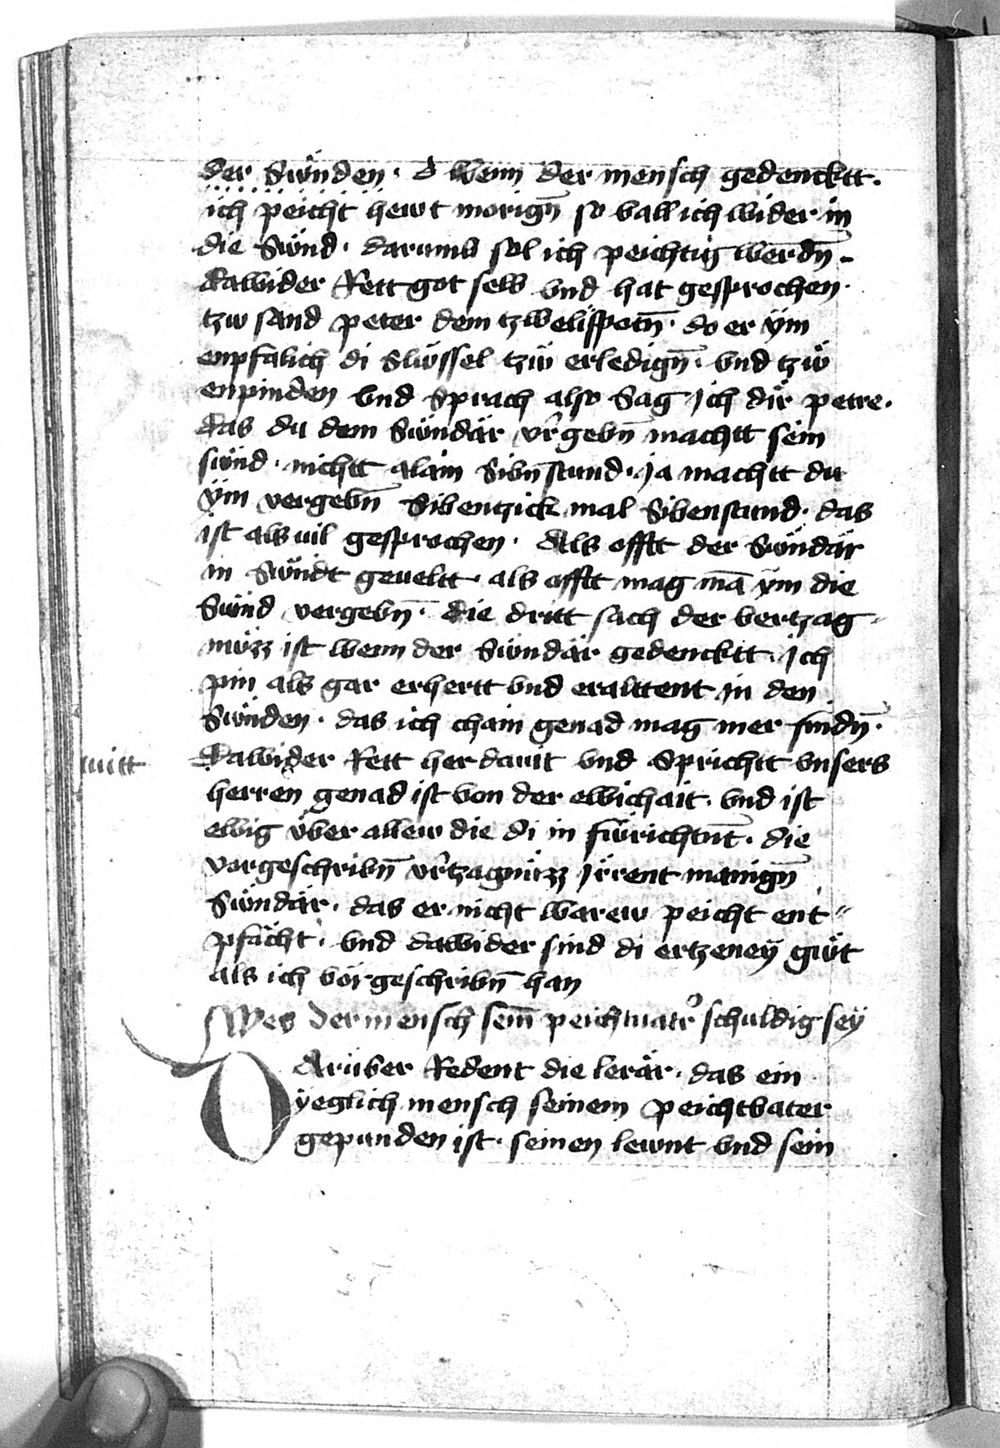 der Sünden · d wenn der mensch gedencktt ·
ich peicht hewt morign̄ so vall ich wider in
die Sünd · darumb sol ich peichtig werdn̄ –
dawider Rett got selb vnd hat gesprochen ·
tzw sand peter dem tzwelifpotn̄ · do er ÿm
enpfalich di Slüssel tzẅ erledign̄ · vnd tzẅ
enpinden vnd Sprach also Sag ich dir petre ·
das du dem Sündär v̉gebn̄ machtt sein
sünd · nichtt alain Sibn̄stund · ja machtt du
ÿm vergebn̄ Sibentzick mal Sibenstund · das
ist als uil gesprochen · Als offtt der Sündär
in Sündt geueltt · als offtt mag mā ÿm die
Sünd vergebn̄ · die dritt sach der vertzag
nüzz ist wenn der Sündär gedencktt · ich
pin als gar erhertt vnd eralttent in den
Sünden · das ich chain genad mag mer findn̄ ·
Dawider Rett her dauit vnd Sprichtt vnsers
herren genad ist von der ewichait · vnd ist
ewig über allew die di in fürichtn̄t · die
vorgeschribn̄ v̉tzagnüzz irrent manign̄
Sündär · das er nicht warew peicht ent〃
pfächt · vnd dawider sind di ertzeneÿ güt
als ich vorgeschribn̄ han
Wes der mensch seim̄ peichtuat̉ schuldig seÿ
DArüber Redent die lerär · das ein
ÿeglich mensch seinem peichtvater
gepunden ist · seinen lewnt vnd sein